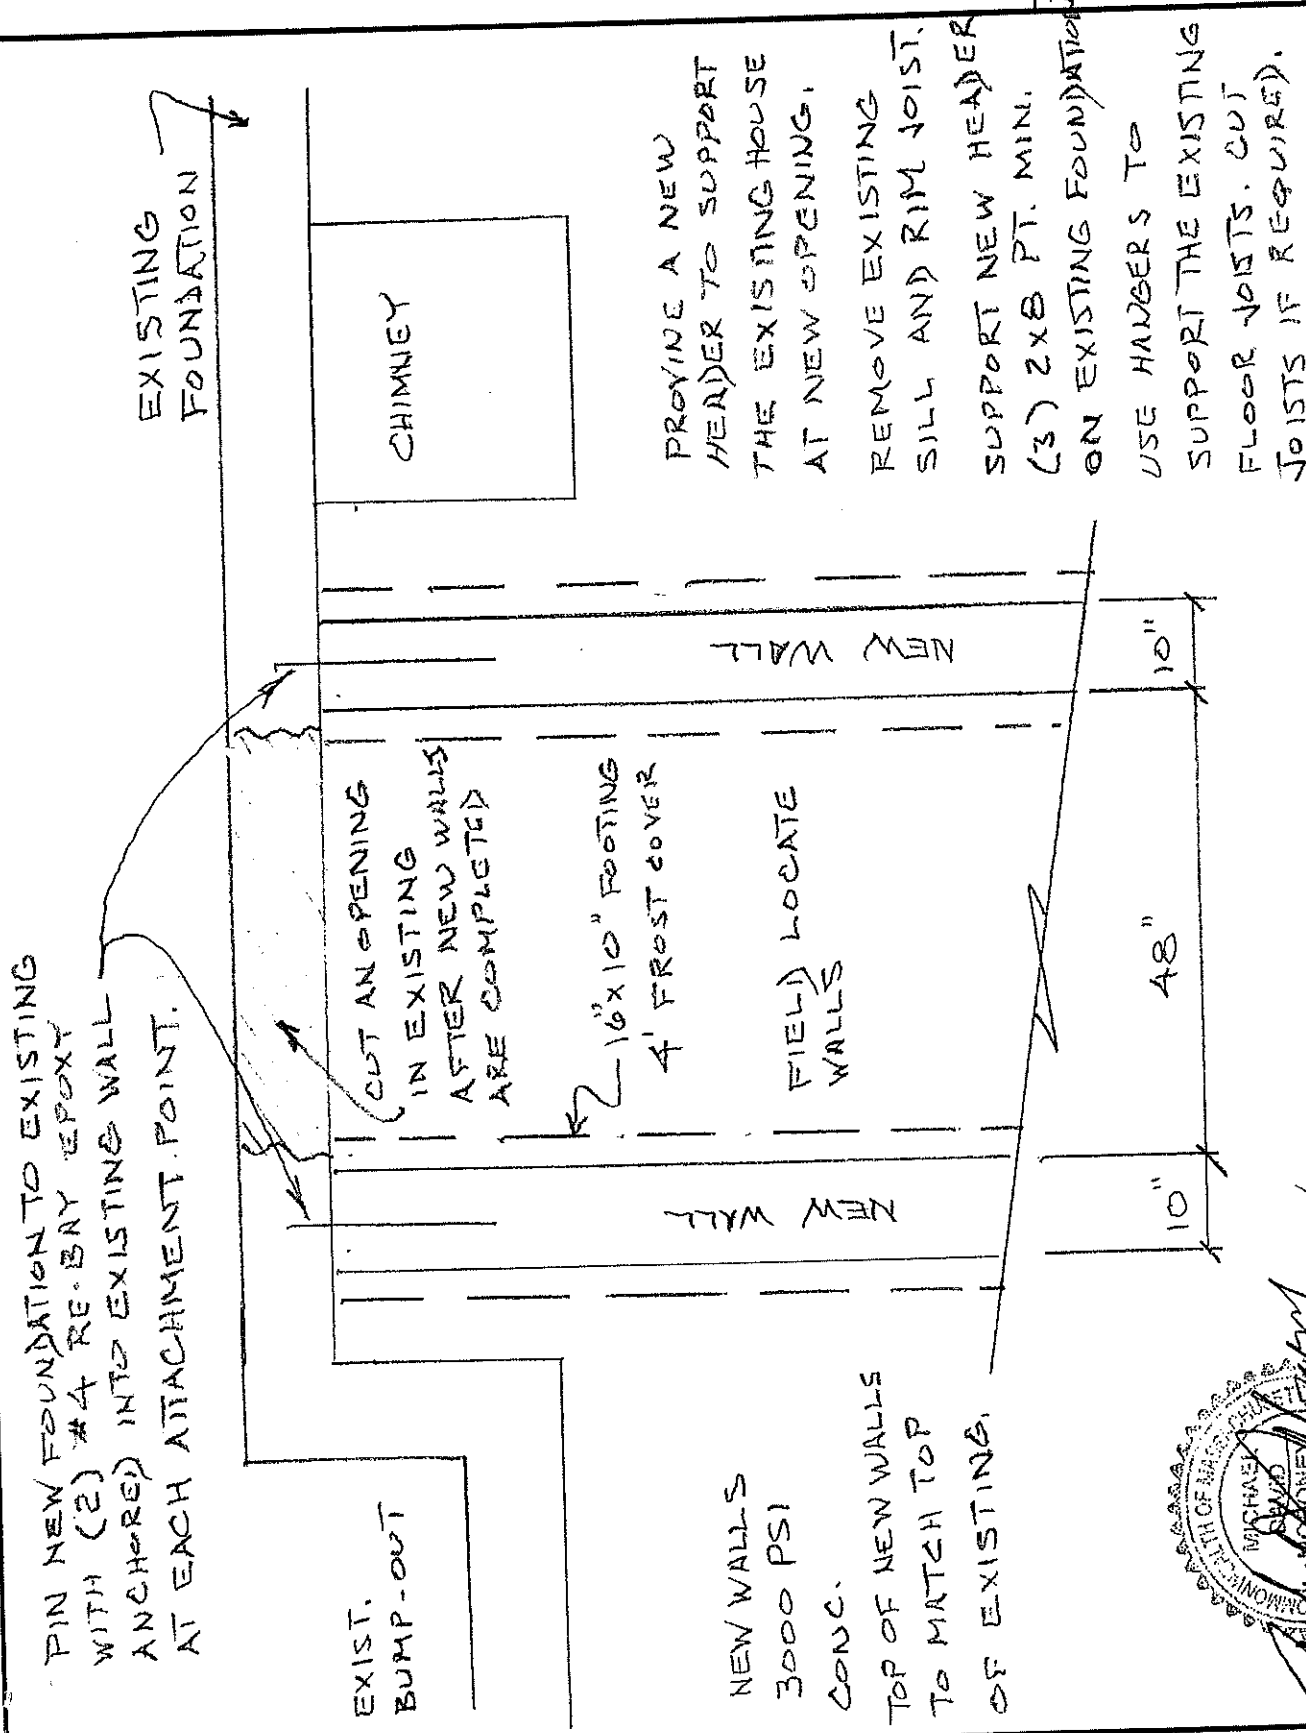 PIN NEW FOUNDATION TO EXISTING
WITH (2) #4 RE-BAY EPOXY
ANCHORED INTO EXISTING WALL
AT EACH ATTACHMENT POINT.
EXISTING
FOUNDATION
EXIST.
BUMP-OUT
CHIMNEY
CUT AN OPENING
IN EXISTING
AFTER NEW WALLS
ARE COMPLETED
16"x10" FOOTING
4' FROST COVER
FIELD LOCATE
WALLS
NEW WALL
NEW WALL
10"
48"
10"
NEW WALLS
3000 PSI
CONC.
TOP OF NEW WALLS
TO MATCH TOP
OF EXISTING.
PROVINE A NEW
HEADER TO SUPPORT
THE EXISTING HOUSE
AT NEW OPENING.
REMOVE EXISTING
SILL AND RIM JOIST.
SUPPORT NEW HEADER
(3) 2x8 PT. MIN.
ON EXISTING FOUNDATION
USE HANGERS TO
SUPPORT THE EXISTING
FLOOR JOISTS. CUT
JOISTS IF REQUIRED.
MICHAEL
DAVID